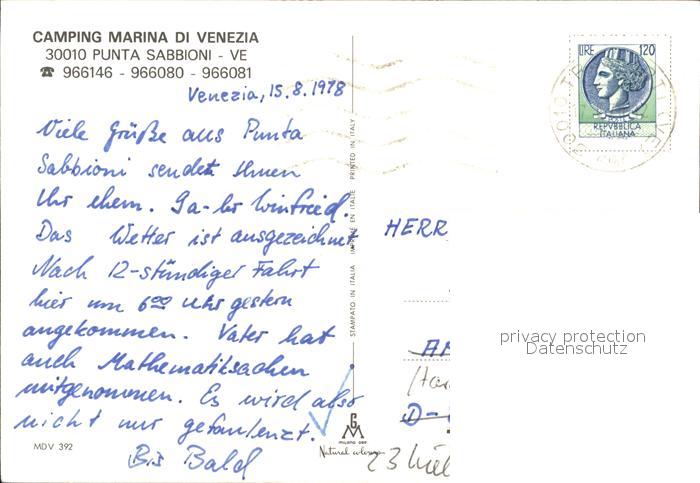 CAMPING MARINA DI VENEZIA
30010 PUNTA SABBIONI - VE
☎ 966146 - 966080 - 966081
Venezia, 15.8.1978
Viele Grüße aus Punta
Sabbioni sendet Ihnen
Ihr ehem. Winfried.
Das Wetter ist ausgezeichnet
Nach 12-stündiger Fahrt
hier um 6 00 Uhr gestern
angekommen. Vater hat
auch Mathematiksachen
mitgenommen. Es wird also
nicht nur gefaulenzt.
Bis Bald
MDV 392
STAMPATO IN ITALIA IMPRIMÉ EN ITALIE PRINTED IN ITALY
Natural colours
LIRE 120
REPVBBLICA
ITALIANA
HERR
D-
23 Kiel
privacy protection
Datenschutz